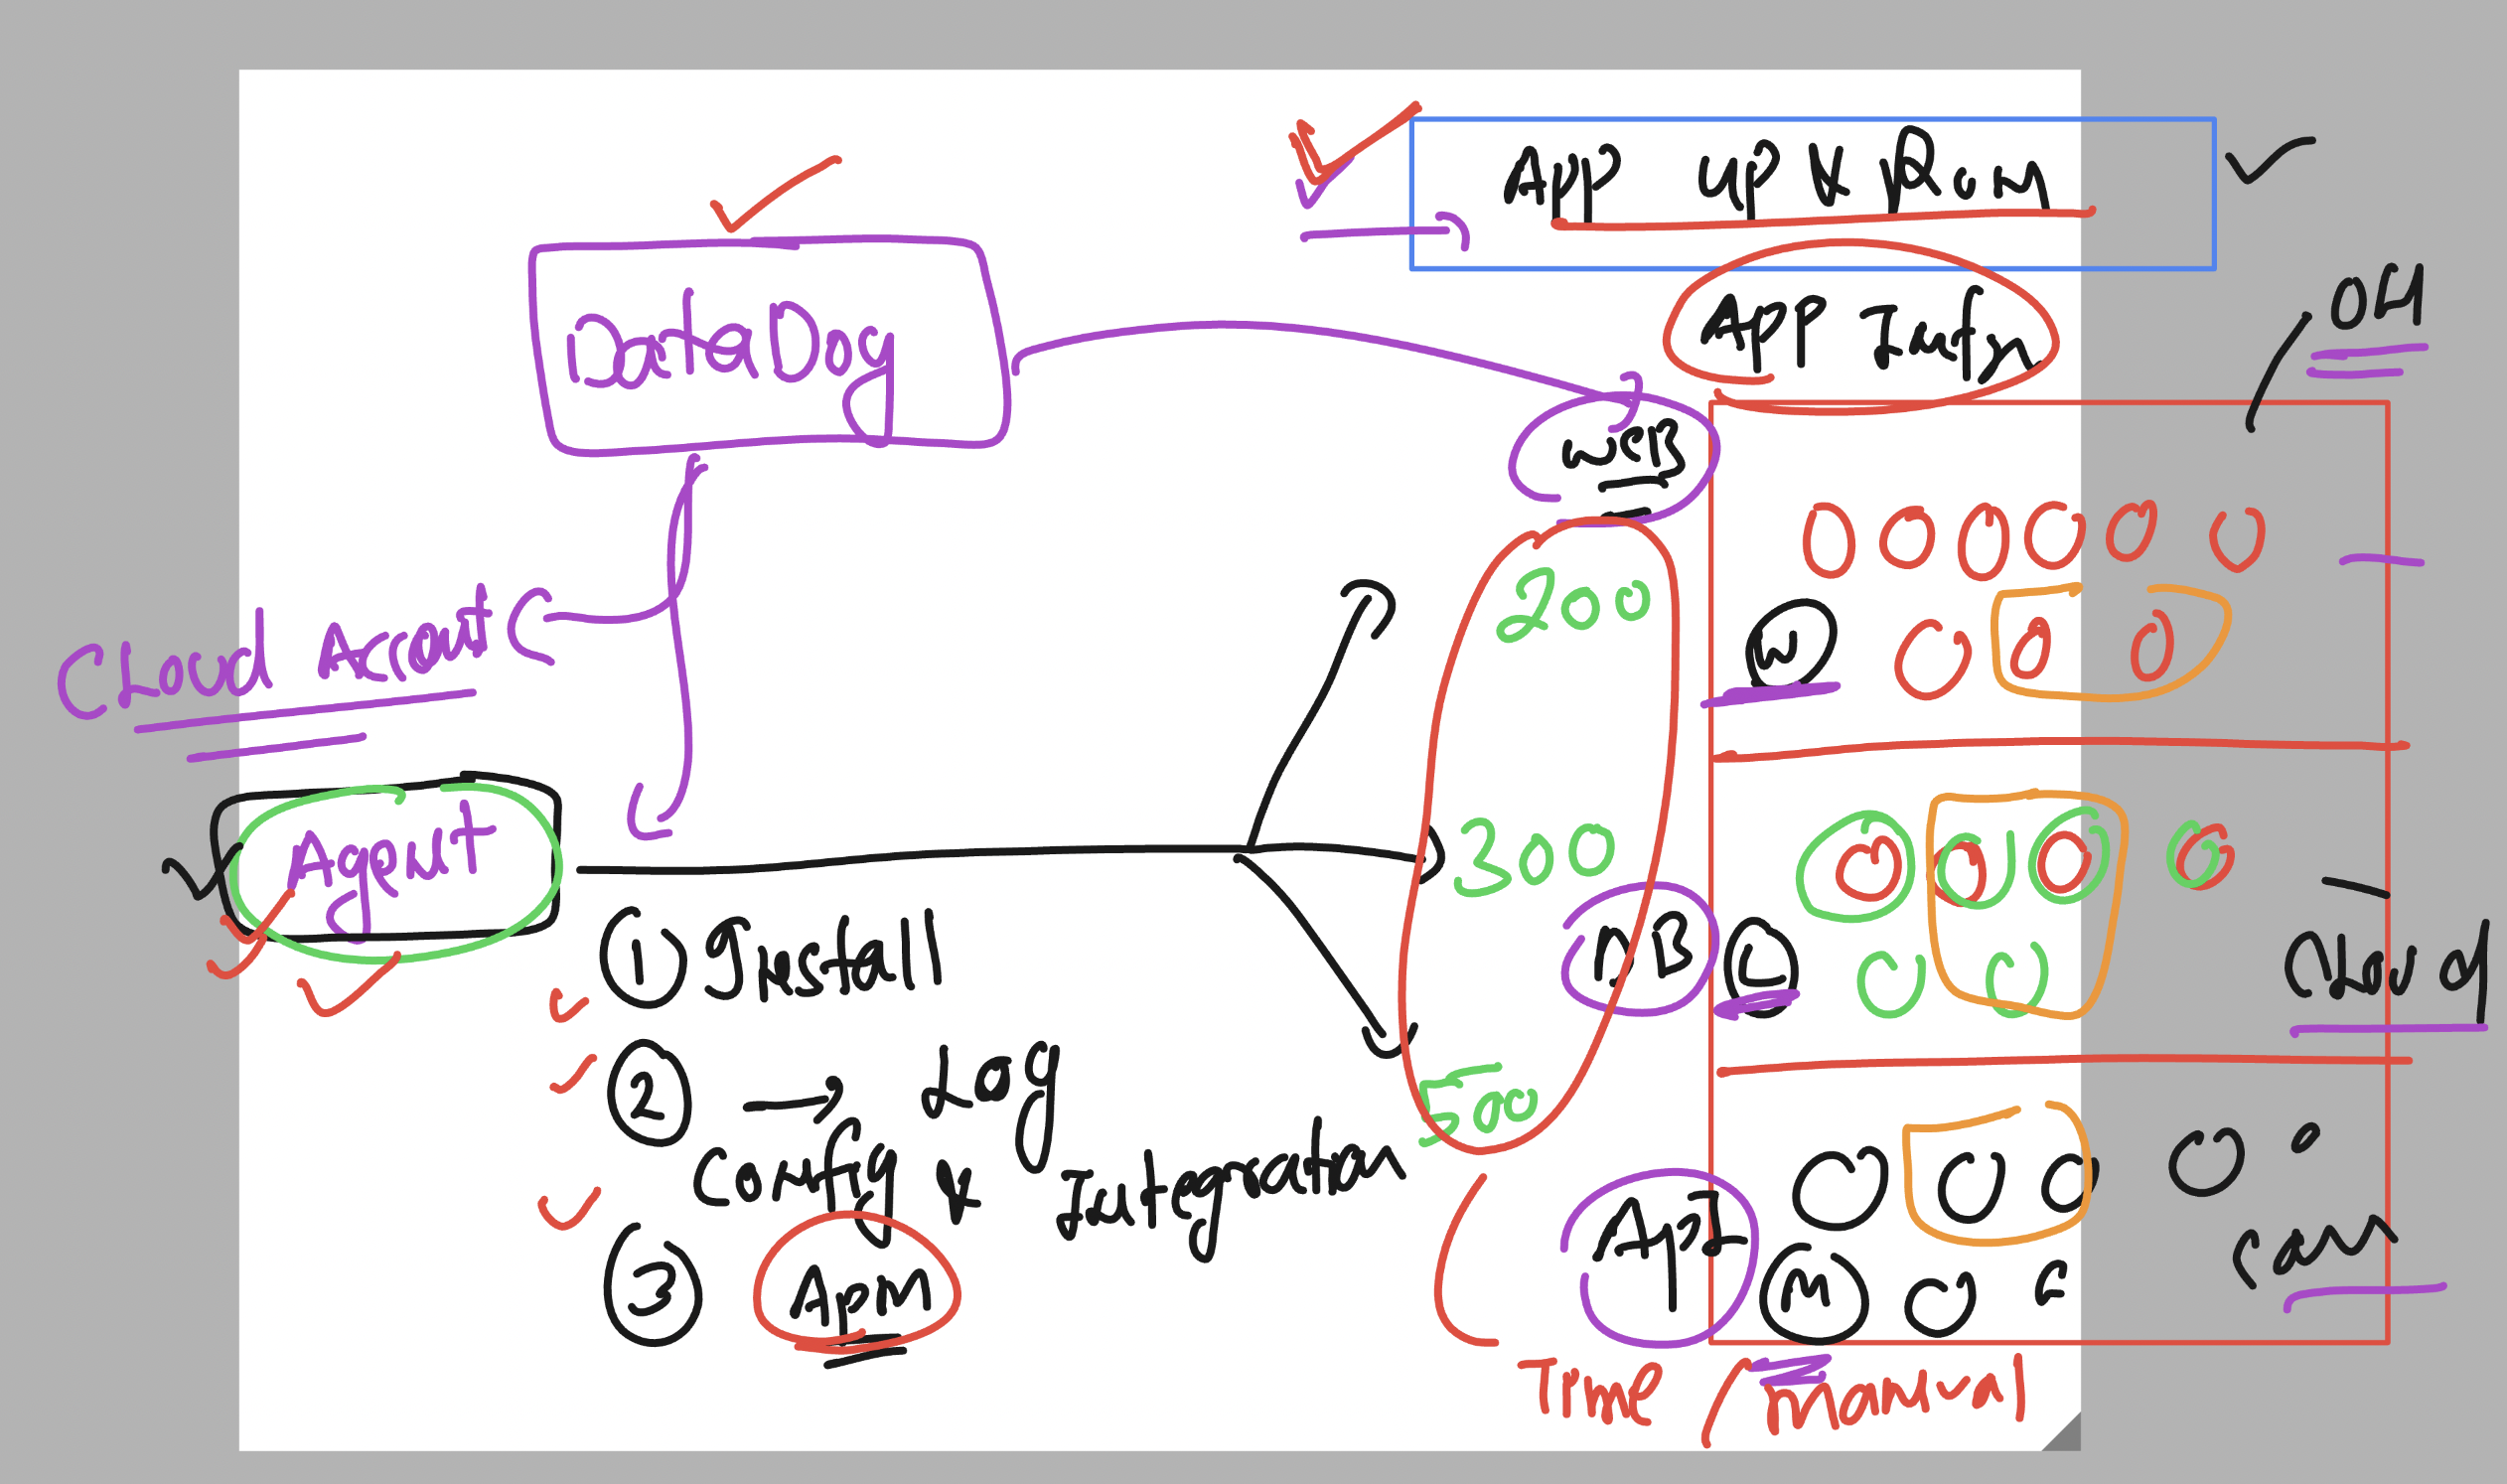 App up & Run
DataDog
App Infra
OH
WEB
200
W
Cloud Acant
Agent
300
DB
L
Cloud
① Install
② → Log
Config & Integration
500
③ Apm
App
M
Time / manual